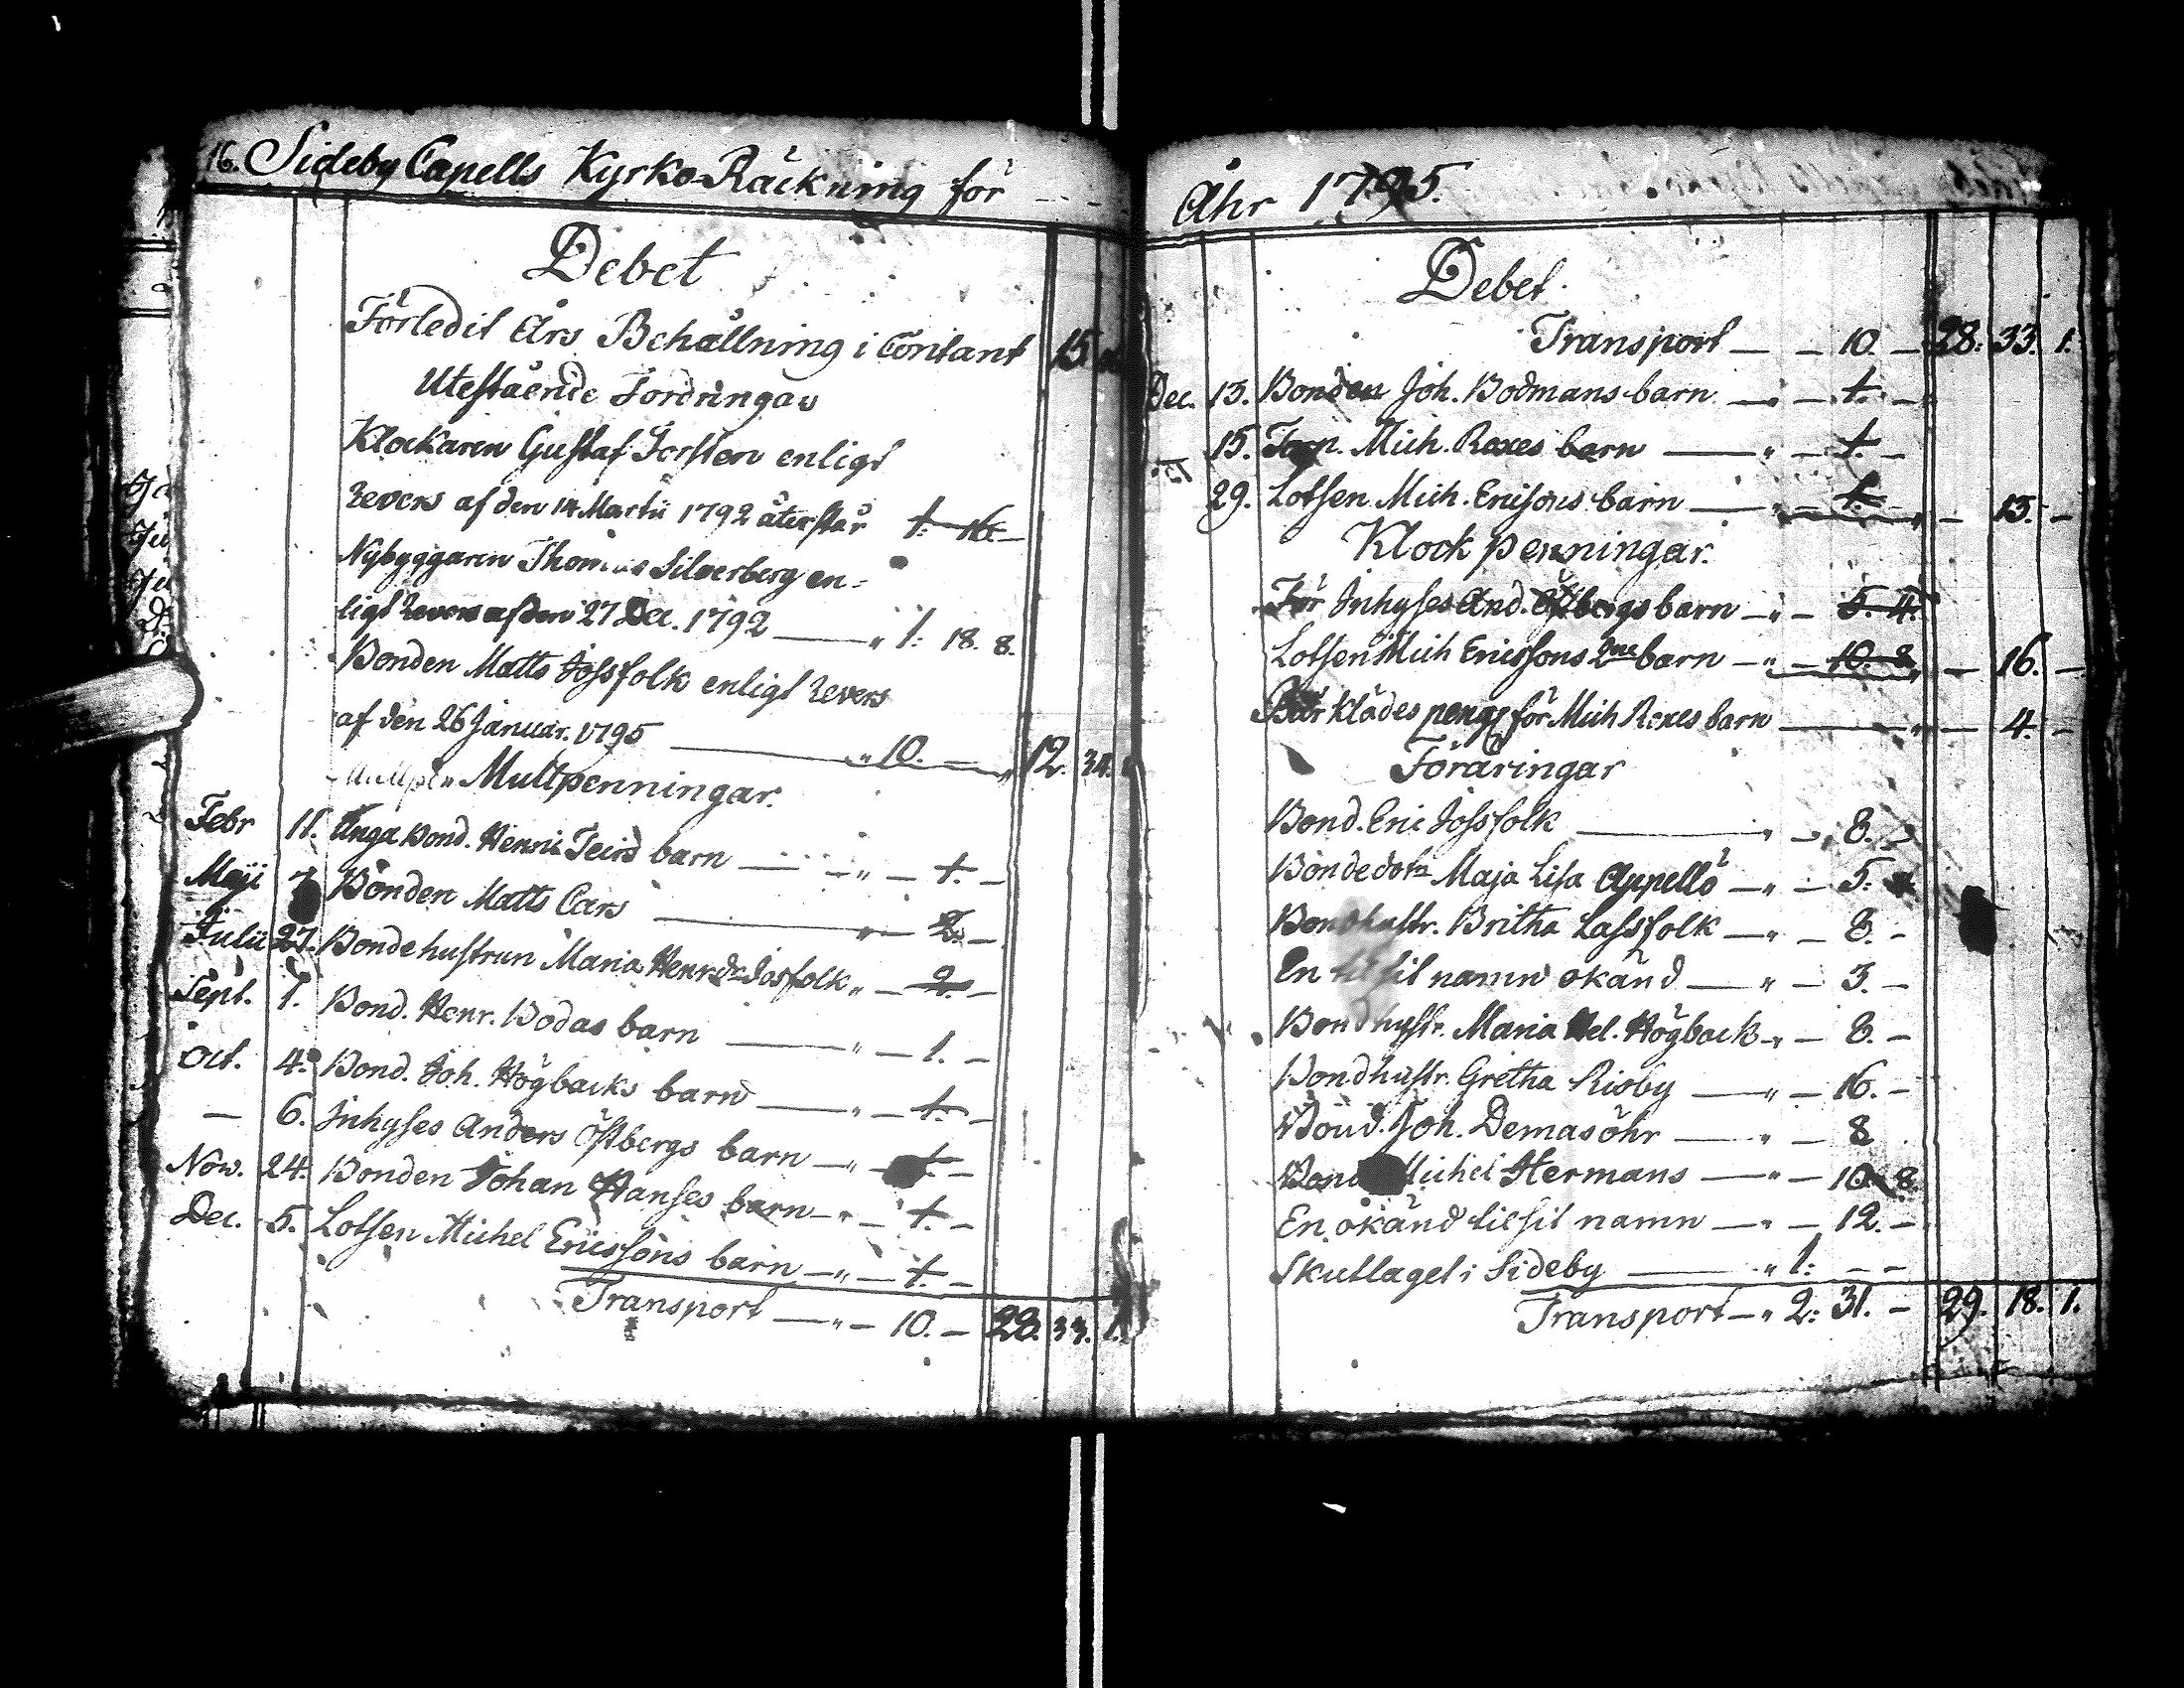 16. Sideby Capells Kyrko-Räckning för
Debet
Förledit Års Behållning i Contant 15.
Utestående Fordringar
Klockaren Gustaf Forsten enligt
revers af den 14 Martii 1792 återstår 1: 16. —
Nybyggaren Thomas Silverberg en-
ligt revers af den 27 Dec. 1792 — " 1: 18. 8.
Bonden Matts Jossfolk enligt revers
af den 26 Januar. 1795 — " 10. — " 12. 34.
Multpenningar.
Febr 11. Unga Bond. Henric Teirs barn — " — 1. —
Maji Bonden Matts Cars — " — 2. —
Julii 27. Bondehustrun Maria Henrsdr Josfolk " — 2. —
Sept. 1. Bond. Henr. Bodas barn — " — 1. —
Oct. 4. Bond. Joh. Högbacks barn — " — 1. —
— 6. Inhyses Anders Östbergs barn — " — 1. —
Nov. 24. Bonden Johan Hanses barn — " — 1. —
Dec. 5. Lotsen Michel Ericssons barn — " — 1. —
Transport — " — 10. — 28. 33. 1.
Åhr 1795.
Debet.
Transport — — 10. — 28. 33. 1.
Dec. 13. Bonden Joh. Bodmans barn — " — 1. —
15. Torp. Mich. Roxes barn — " — 1. —
29. Lotsen Mich. Ericsons barn — " — 1. — " — 13. —
Klockpenningar.
För Inhyses And. Östbergs barn — " — 5. 4.
Lotsen Mich Ericssons 2ne barn — " — 10. 8. " — 16. —
Bår klädes peng för Mich Roxes barn — " — 4. —
Föräringar
Bond. Eric Jossfolk — " — 8. —
Bondedotr Maja Lisa Appellö — " — 5.
Bondhustr. Britha Lassfolk — " — 8. —
En til sit namn okänd — " — 3. —
Bondhustr. Maria Hel. Högback — " — 8. —
Bondhustr. Gretha Risby — " — 16. —
Bond. Joh. Demasöhr — " — 8
Bond Michel Hermans — " — 10. 8.
En okänd til sit namn — " — 12. —
Skutlaget i Sideby — " 1: — —
Transport — " 2: 31. — 29. 18. 1.